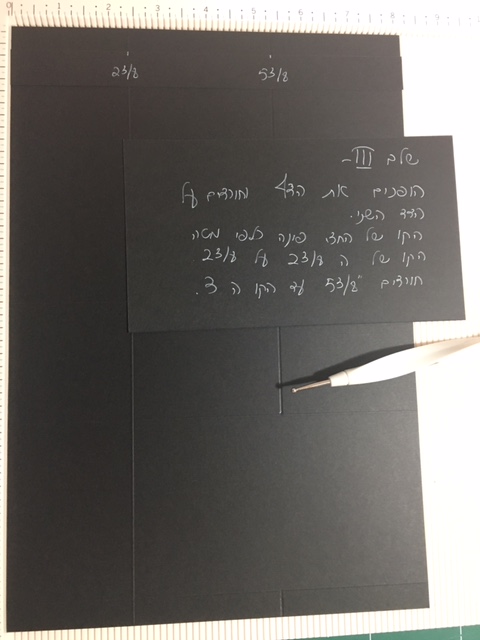 0 1 2 3 4 5 6 7 8 9
2 3/8 5 3/8
שלב III-
הופכים את הדף וחורצים על
הצד השני.
הקו של החצי פונה כלפי מטה
הקו של ה 2 3/8 על 2 3/8
חורצים 5 3/8" עד הקו ה 3.